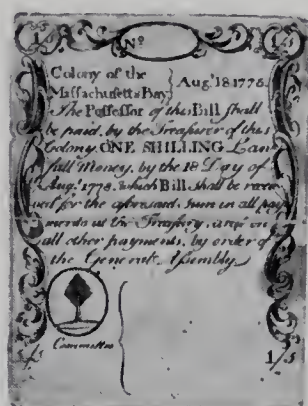 No.
Colony of the
Massachusetts Bay } Aug. 18 1776.
The Possessor of this Bill shall
be paid, by the Treasurer of this
Colony, ONE SHILLING Law
full Money, by the 18 Day of
Aug. 1778. which Bill shall be recei
ved for the aforesaid sum in all pay
ments at the Treasury, and in
all other payments, by order of
the General Assembly
Committee
1/S